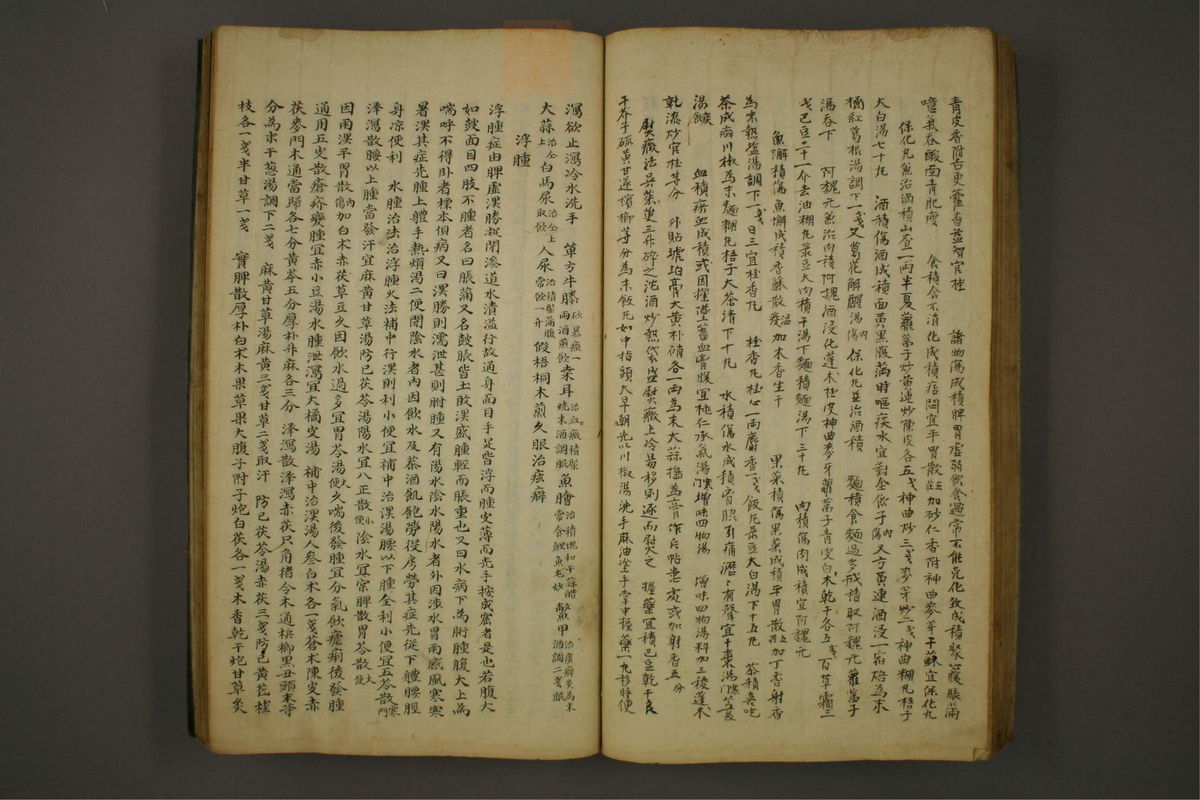 青皮香附舌更藿香益智官桂 諸物傷成積脾胃虛弱飮食過常不能克化致成積聚心腹脹滿
噫氣呑酸面靑肥瘦 食積食不消化成積痞悶宜平胃散加砂仁香附神曲麥芽干蘇宜保化丸
保化丸兼治酒積山査二兩半夏蘿葍子炒黃連炒陳皮各五戔神曲炒三戔麥芽炒二戔神曲糊丸梧子
大白湯七十丸 酒積傷酒成積面黃黑腹滿時嘔痰水宜對金飮子內又方黃連酒浸一宿焙爲末
橘紅葛根湯調下一戔又葛花解酲湯內傷保化丸並治酒積 麵積食麵過多成積取阿魏元蘿葍子
湯呑下 阿魏元兼治肉積阿魏酒浸化蓬朮桂皮神曲麥牙蘿葍子靑皮白朮乾干各五戔百草霜三
戔巴豆二十一介去油糊丸菉豆大肉積干湯下麵積麵湯下三十丸 肉積傷肉成積宜阿魏元
魚蠏積傷魚蠏成積香蘇散加木香生干 果菜積傷果菜成積平胃散加丁香射香
爲末熱鹽湯調下一戔日三宜桂香丸 桂香丸桂心一兩麝香一戔飯丸菉豆大白湯下十五丸 茶積喜吃
茶成病川椒爲末麵糊丸梧子大茶淸下十丸 水積傷水成積胷脇引痛瀝瀝有聲宜干棗湯
湯飮 血積瘀血成積或因撞墜蓄血胷腹宜桃仁承氣湯增味四物湯 增味四物湯料加三稜蓬朮
乾漆炒官桂等分 外貼琥珀膏大黃朴硝各一兩爲末大蒜搗爲膏作片帖患處或加射香五分
熨癥法吳茱萸三升碎之沈酒炒熱袋盛熨癥上冷易移則逐而熨之 握藥宜積巴豆乾干良
干芥子硫黃甘遂檳榔等分爲末飯丸如中指頭大早朝先以川椒湯洗手麻油塗手掌中握藥一丸移時便
瀉欲止瀉冷水洗手 單方牛膝 桑耳 魚膾 鱉甲
大蒜 白馬尿 人尿 假梧桐木煎久服治痃癖
浮腫
浮腫症由脾虛濕勝凝閉滲道水漬溢行故通身面目手足皆浮而腫皮薄而光手按成窟者是也若腹大
如鼓面目四肢不腫者名曰脹滿又名鼓脹皆土敗濕盛腫輕而脹重也又曰水病下爲胕腫腹大上爲
喘呼不得臥者標本俱病又曰濕勝則濡泄甚則胕腫又有陽水陰水陽水者外因涉水冒雨感風寒
暑濕其症先腫上體手熱煩渴二便閉陰水者內因飮水及茶酒飢飽勞役房勞其症先從下體腰脛
身凉便利 水腫治法治浮腫大法補中行濕則利小便宜補中治濕湯腰以下腫全利小便宜五苓散
澤瀉散腰以上腫當發汗宜麻黃甘草湯防己茯苓湯陽水宜八正散陰水宜宲脾散胃苓散
因雨濕平胃散加白朮赤茯草豆久因飮水過多宜胃苓湯久喘後發腫宜分氣飮瘧痢後發腫
通用五皮散瘡疥變腫宜赤小豆湯水腫泄瀉宜大橘皮湯 補中治濕湯人參白朮各一戔蒼朮陳皮赤
茯麥門木通當歸各七分黃芩五分厚朴升麻各三分 澤瀉散澤瀉赤茯只角猪令木通梹榔黑丑頭末等
分爲末干葱湯調下二戔 麻黃甘草湯麻黃三戔甘草二戔取汗 防己茯苓湯赤茯三戔防己黃芪桂
枝各一戔半甘草一戔 實脾散厚朴白朮木果草果大腹子附子炮白茯各一戔木香乾干炮甘草灸